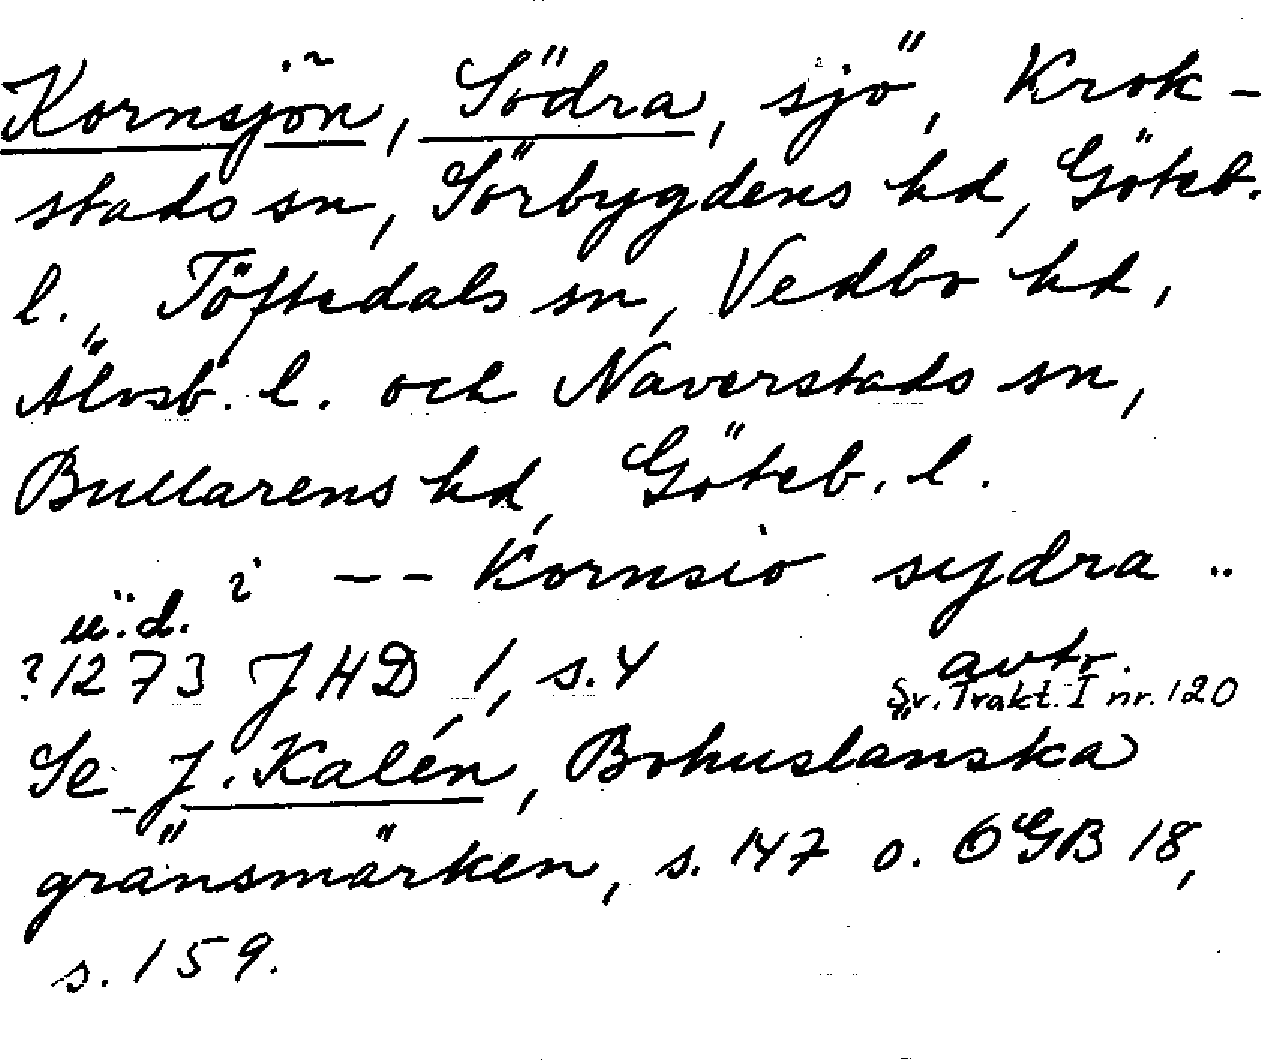 Kornsjön, Södra, sjö, Krok-
stads sn, Sörbygdens hd, Göteb.
l., Töftedals sn, Vedbo hd,
Älvsb. l. och Naverstads sn,
Bullarens hd, Göteb. l.
i -- Kornsio sydra ..
u.d.
?1273 JHD 1, s.4 avtr.
Sv. Trakt. I nr. 120
Se J. Kalén, Bohuslänska
gränsmärken, s. 147 o. OGB 18,
s. 159.